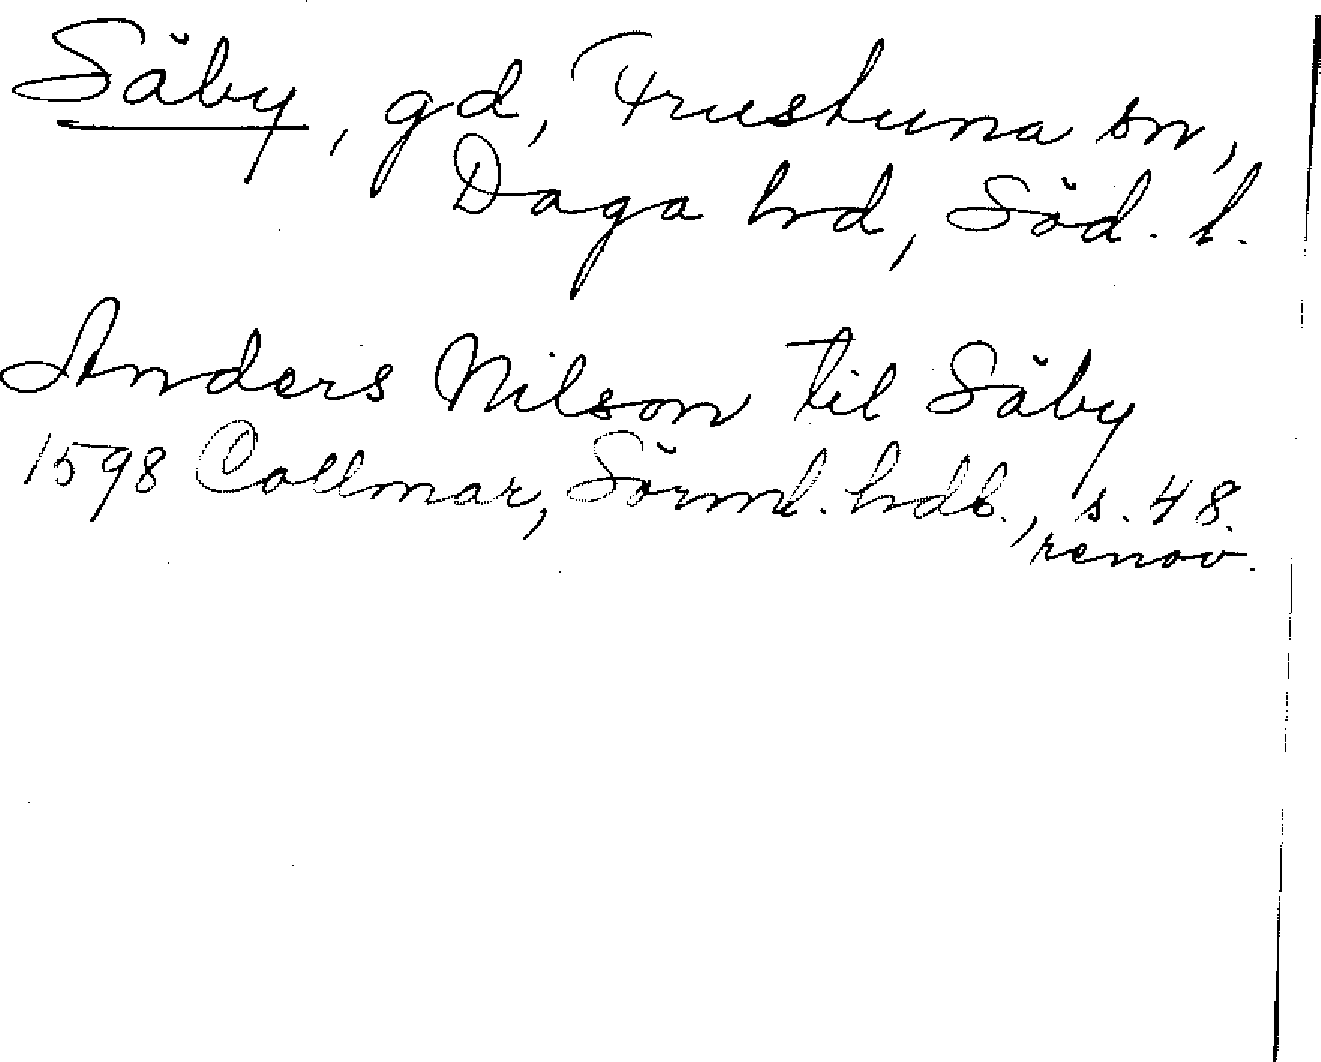 Säby, gd, Frustuna sn,
Daga hd, Söd. l.
Anders Nilson til Säby
1598 Collmar, Sörml. hdl., s. 48.
renov.